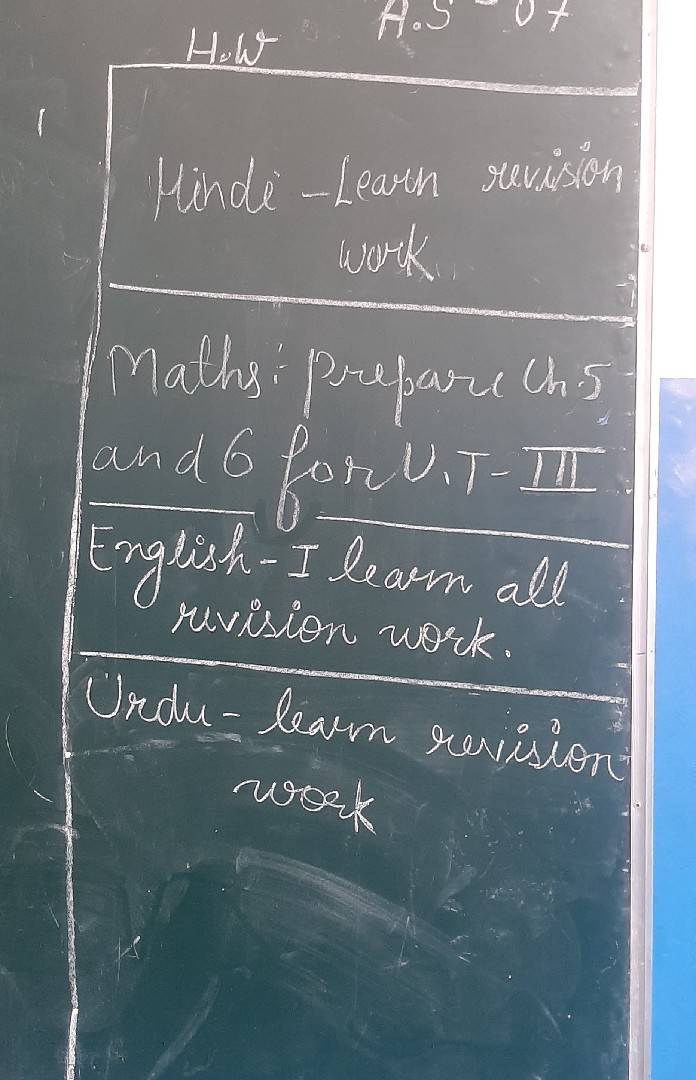 A.S - 07
H.W
Hindi - Learn revision
work
Maths:- Prepare Ch.5
and 6 for U.T- III
English - I learn all
revision work.
Urdu - learn revision
work